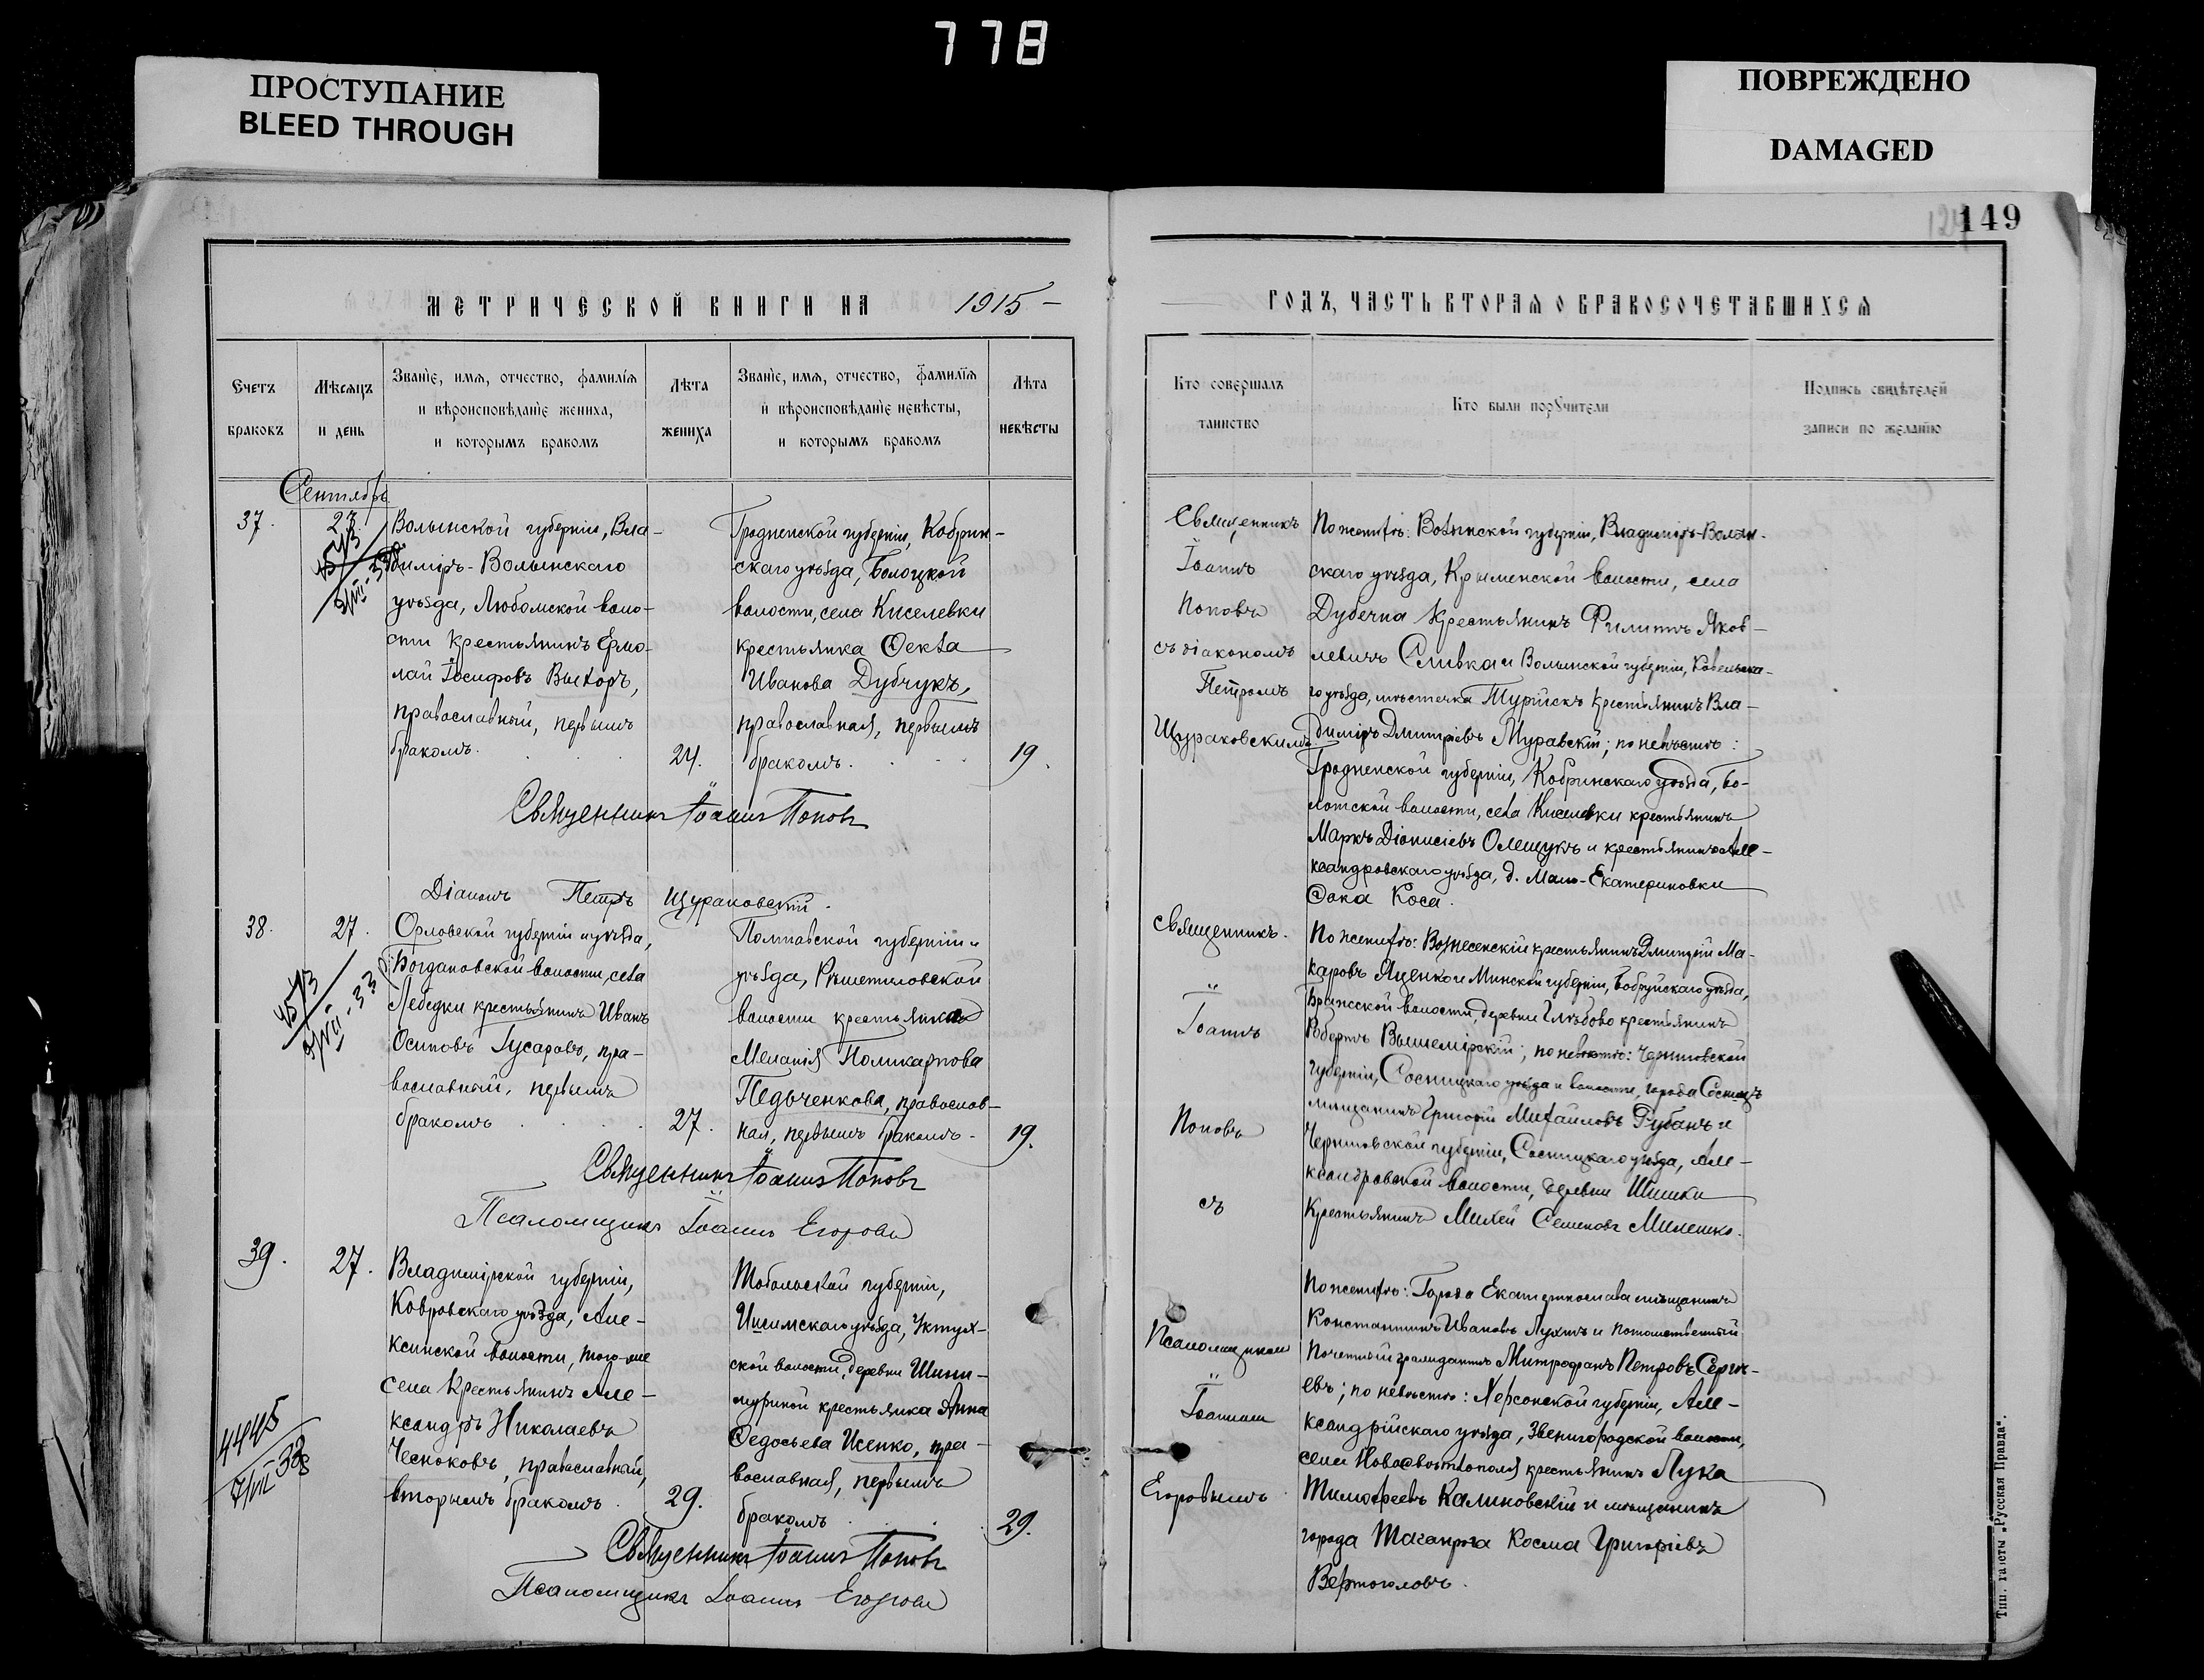 778
ПРОСТУПАНИЕ
BLEED THROUGH
ПОВРЕЖДЕНО
DAMAGED
149
МЕТРИЧЕСКОЙ КНИГИ НА 1915 -
Счетъ браковъ
Мѣсяцъ и день
Званіе, имя, отчество, фамилія
и вѣроисповѣданіе жениха,
и которымъ бракомъ
Лѣта жениха
Званіе, имя, отчество, фамилія
и вѣроисповѣданіе невѣсты,
и которымъ бракомъ
Лѣта невѣсты
Сентябрь
37.
27.
Волынской губерніи, Вла-
диміръ-Волынскаго
уѣзда, Любомской воло-
сти крестьянинъ Ермо-
лай Іосифовъ
православный, первымъ
бракомъ.
24.
Гродненской губерніи, Кобрин-
скаго уѣзда, Болоцкой
волости, села Киселевки
крестьянка Ѳекла
Иванова Дубчукъ,
православная, первымъ
бракомъ.
19.
Священникъ Іоаннъ Поповъ
Діаконъ Петръ Щураковскій.
38.
27.
4573
Орловской губерніи и уѣзда,
Богдановской волости, села
Лебедки крестьянинъ Иванъ
Осиповъ Гусаровъ, пра-
вославный, первымъ
бракомъ
27.
Полтавской губерніи и
уѣзда, Рѣшетиловской
волости крестьянка
Меланія Поликарпова
Педьченкова, православ-
ная, первымъ бракомъ.
19.
Священникъ Іоаннъ Поповъ
Псаломщикъ Іоаннъ Егоровъ
39.
27.
4445
Владимірской губерніи,
Ковровскаго уѣзда, Але-
ксинской волости, того-же
села крестьянинъ Але-
ксандръ Николаевъ
Чесноковъ, православный,
вторымъ бракомъ.
29.
Тобольской губерніи,
Ишимскаго уѣзда, Уктуз-
ской волости, деревни
крестьянка Анна
Ѳедосьева Исенко, пра-
вославная, первымъ
бракомъ
29.
Священникъ Іоаннъ Поповъ
Псаломщикъ Іоаннъ Егоровъ
ГОДЪ, ЧАСТЬ ВТОРАЯ О БРАКОСОЧЕТАВШИХСЯ
Кто совершалъ
таинство
Кто были поручители
Подпись свидѣтелей
записи по желанію
Священникъ
Іоаннъ
Поповъ
съ діакономъ
Петромъ
Щураковскимъ
По женихѣ: Волынской губерніи, Владиміръ-Волын-
скаго уѣзда, Крыменской волости, села
Дубечна крестьянинъ Филиппъ Яков-
левичъ Сливка и Волынской губерніи, Ковельска-
го уѣзда, мѣстечка Турійскъ крестьянинъ Вла-
диміръ Дмитріевъ Муравскій; по невѣстѣ:
Гродненской губерніи, Кобринскаго уѣзда, Бо-
лотской волости, села Киселевки крестьянинъ
Маркъ Діонисіевъ Олещукъ и крестьянинъ Але-
ксандровскаго уѣзда, д. Мало-Екатериновки
Ѳока Коса.
Священникъ.
Іоаннъ
Поповъ
съ
По женихѣ: Вознесенскій крестьянинъ Дмитрій Ма-
каровъ Яценко и Минской губерніи, Бобруйскаго уѣзда,
волости, деревни Глѣбово крестьянинъ
Робертъ Вышемірскій; по невѣстѣ: Черниговской
губерніи, Сосницкаго уѣзда и волости, города Сосницъ
мѣщанинъ Григорій Михайловъ Рубанъ и
Черниговской губерніи, Сосницкаго уѣзда, Але-
ксандровской волости, деревни Шишки
крестьянинъ Михей Семеновъ Милешко.
Псаломщикомъ
Іоанномъ
Егоровымъ
По женихѣ: Города Екатеринослава мѣщанинъ
Константинъ Ивановъ Лухтъ и потомственный
почетный гражданинъ Митрофанъ Петровъ Серги-
евъ; по невѣстѣ: Херсонской губерніи, Але-
ксандрійскаго уѣзда, Звенигородской волости,
села крестьянинъ Лука
Тимофеевъ Калиновскій и мѣщанинъ
города Таганрога Косма Григоріевъ
Вертоголовъ.
Тип. газеты „Русская Правда".